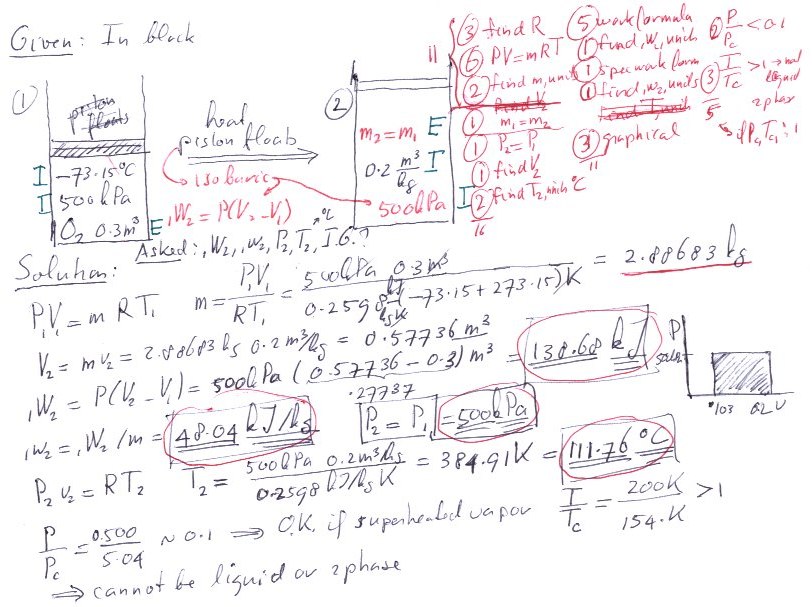 Given: In black
①
piston
floats
I -73.15°C
I 500kPa
O₂ 0.3m³ E
heat
piston floats
isobaric
₁W₂ = P(V₂-V₁)
②
m₂=m₁ E
0.2 m³/kg I
500kPa I
11
③ find R
⑥ PV=mRT
② find m, units
find V₂
① m₁=m₂
① P₂=P₁
① find V₂
② find T₂, unit °C
16
⑤ work formula
① find, W₂, units
① spec work form
① find, w₂, units
find T, unit
③ graphical
11
② P/Pc < 0.1
③ T/Tc > 1 → not
liquid
2phase
5
if P₁, T₁ :1
°C
Asked: ₁W₂, ₁w₂, P₂, T₂, I.G.?
Solution:
P₁V₁ = m RT₁ m = P₁V₁/RT₁ = 500kPa 0.3m³ / 0.2598 kJ/kgK (-73.15+273.15)K = 2.88683 kg
V₂ = mv₂ = 2.88683 kg 0.2 m³/kg = 0.57736 m³
₁W₂ = P(V₂-V₁) = 500kPa (0.57736-0.3) m³ = 138.68 kJ
.27737
P
500kPa
.103 0.2 v
₁w₂ = ₁W₂/m = 48.04 kJ/kg P₂ = P₁ = 500kPa
P₂v₂ = RT₂ T₂ = 500kPa 0.2m³/kg / 0.2598 kJ/kg K = 384.91K = 111.76 °C
P/Pc = 0.500/5.04 ~ 0.1 ⇒ O.K. if superheated vapor T/Tc = 200K/154.K > 1
⇒ cannot be liquid or 2phase